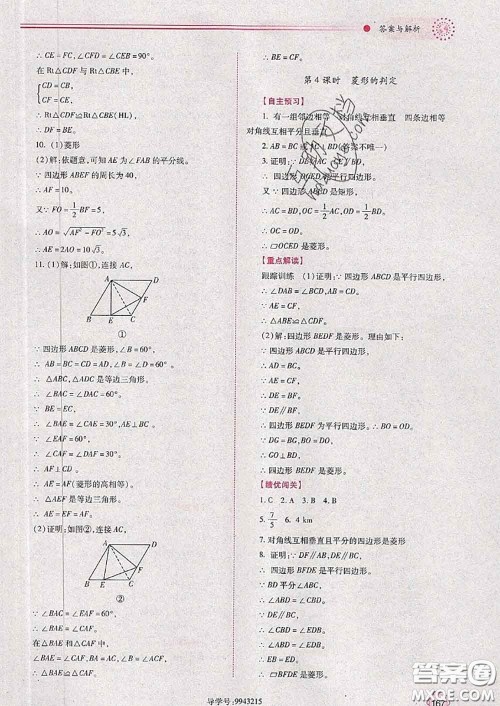 答案与解析
∴ CE=FC,∠CFD=∠CEB=90°.
在 Rt△CDF 与 Rt△CBE 中,
CD=CB,
CF=CE,
∴ Rt△CDF≌Rt△CBE(HL).
∴ DF=BE.
10. (1)菱形
(2)解:依题意,可知 AE 为∠FAB 的平分线.
∵ 四边形 ABEF 的周长为 40,
∴ AF=10.
又∵ FO=1/2BF=5,
∴ AO=√AF²-FO²=5√3,
∴ AE=2AO=10√3.
11. (1)解:如图①,连接 AC,
A D
F
B E C
①
∵ 四边形 ABCD 是菱形,∠B=60°,
∴ AB=BC=CD=AD,∠BCF=120°.
∴ △ABC,△ADC 是等边三角形.
∵ BE=EC,
∴ ∠BAE=∠CAE=30°,AE⊥BC.
∵ ∠EAF=60°,
∴ ∠CAF=∠DAF=30°.
∴ AF⊥CD.
∴ AE=AF(菱形的高相等).
∴ △AEF 是等边三角形.
∴ AE=EF=AF.
(2)证明:如图②,连接 AC,
A D
F
B E C
②
∵ ∠BAC=∠EAF=60°,
∴ ∠BAE=∠CAF.
在△BAE 和△CAF 中,
∠BAE=∠CAF,
BA=AC,
∠B=∠ACF,
∴ △BAE≌△CAF.
∴ BE=CF.
第 4 课时 菱形的判定
【自主预习】
1. 有一组邻边相等 对角线互相垂直 四条边相等
对角线互相平分且垂直
2. AB=BC 或 AC⊥BD(答案不唯一)
3. 证明:∵ DE∥AC,CE∥BD,
∴ 四边形 OCED 是平行四边形.
又∵ 四边形 ABCD 是矩形,
∴ OC=1/2AC,OD=1/2BD,AC=BD.
∴ OC=OD.
∴ □OCED 是菱形.
【重点解读】
跟踪训练 (1)证明:∵ 四边形 ABCD 是平行四边形,
∴ ∠DAB=∠BCD.
∴ ∠EAB=∠FCD.
又∵ AB=CD,
∵ AE=CF,
∴ △ABE≌△CDF.
(2)解:四边形 BEDF 是菱形. 理由如下:
∵ 四边形 ABCD 是平行四边形,
∴ AD=BC.
∵ AE=CF,
∴ DE=BF.
∵ DE∥BF,
∴ 四边形 BEDF 为平行四边形. ∴ BO=DO.
∵ DG=BG,BO=DO,
∴ GO⊥BD.
∴ 四边形 BEDF 是菱形.
【精优闯关】
1. C 2. A 3. B 4. B
5. 7/5 6. 4 km
7. 对角线互相垂直且平分的四边形是菱形
8. 证明:∵ DF∥AB,DE∥BC,
∴ 四边形 BFDE 是平行四边形.
∵ BD 平分∠ABC,
∴ ∠ABD=∠DBC.
∵ DE∥BC,
∴ ∠DBC=∠EDB.
∴ ∠ABD=∠EDB.
∴ BE=DE.
∴ □BFDE 是菱形.
导学号:9943215
167
答案圈
MXQE.COM